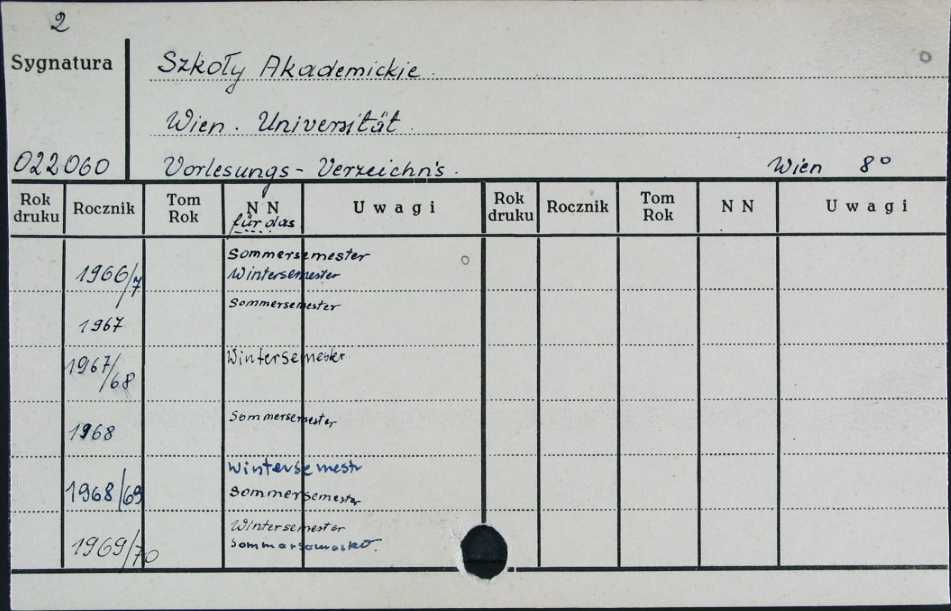 2
Sygnatura
Szkoły Akademickie.
Wien. Universität.
022060 Vorlesungs-Verzeichn's. Wien 8°
Rok druku Rocznik Tom Rok NN für das Uwagi Rok druku Rocznik Tom Rok NN Uwagi
Sommersemester
1966/7 Wintersemester
Sommersemester
1967
Wintersemester
1967/68
Sommersemester
1968
Wintersemestr
1968/69 Sommersemester
Wintersemester
1969/70